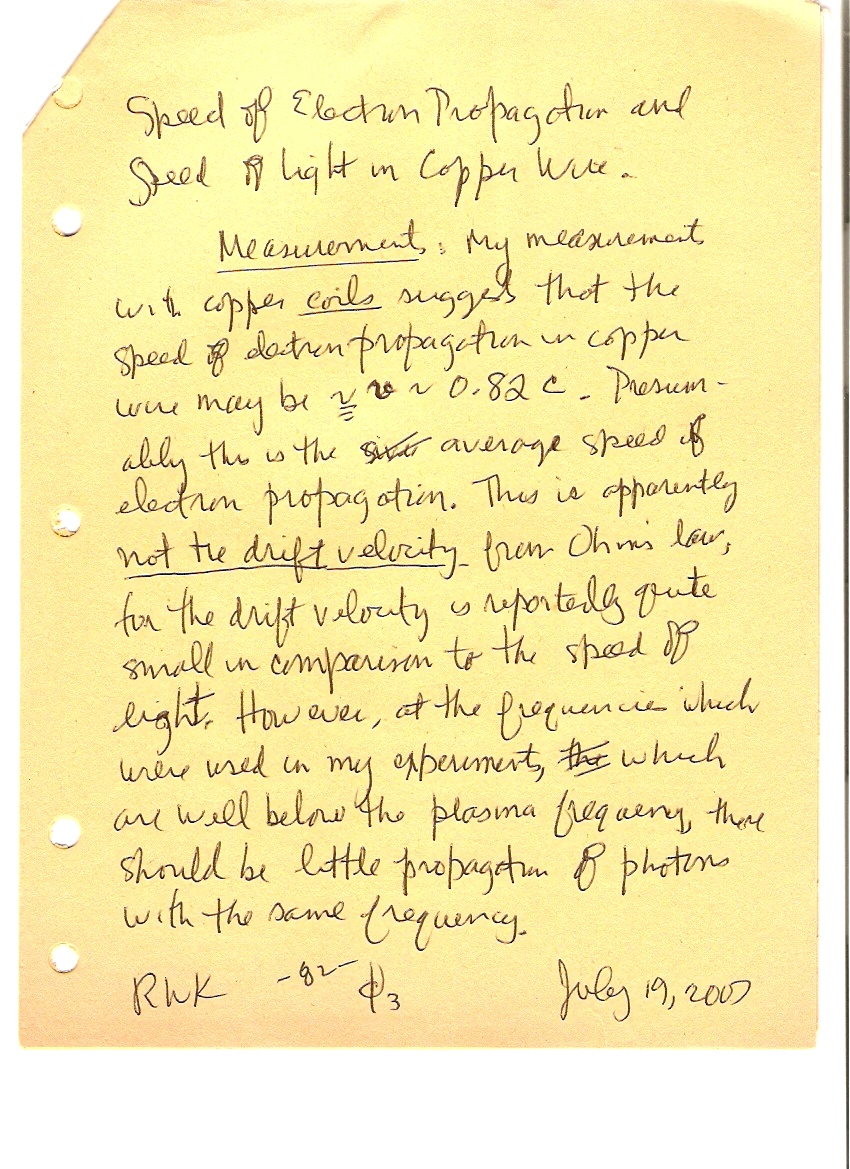 Speed of Electron Propagation and
Speed of light in Copper Wire.
Measurements: My measurements
with copper coils suggests that the
speed of electron propagation in copper
wire may be ~ v ~ 0.82 c. Presum-
ably this is the average speed of
electron propagation. This is apparently
not the drift velocity from Ohm's law,
for the drift velocity is reportedly quite
small in comparison to the speed of
light. However, at the frequencies which
were used in my experiments, which
are well below the plasma frequency, there
should be little propagation of photons
with the same frequency.
RWK -82- ɸ3 July 19, 2007